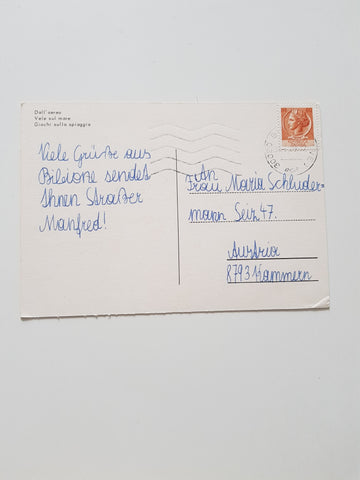 Dall'aereo
Vele sul mare
Giochi sulla spiaggia
Viele Grüße aus
Bibione sendet
Ihnen Straßer
Manfred!
An
Frau Maria Schluder-
mann Seiz 47.
Austria
8793 Kammern